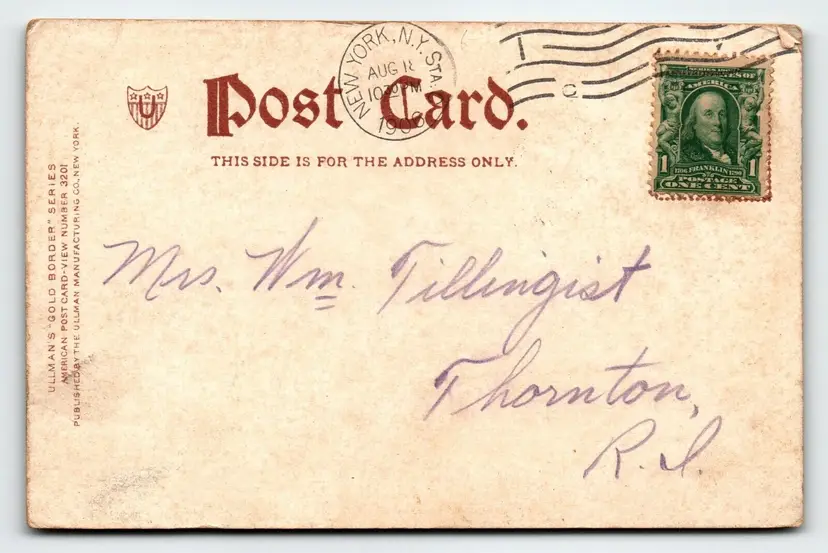 NEW YORK, N.Y. STA.
AUG 18
1030 PM
C
U
Post Card.
THIS SIDE IS FOR THE ADDRESS ONLY.
SERIES
UNITED STATES OF
AMERICA
1 FRANKLIN 1
POSTAGE
ONE CENT
ULLMAN'S "GOLD BORDER" SERIES
AMERICAN POST CARD-VIEW NUMBER 3201
PUBLISHED BY THE ULLMAN MANUFACTURING CO., NEW YORK.
Mrs. Wm. Tillingist
Thornton,
R.I.